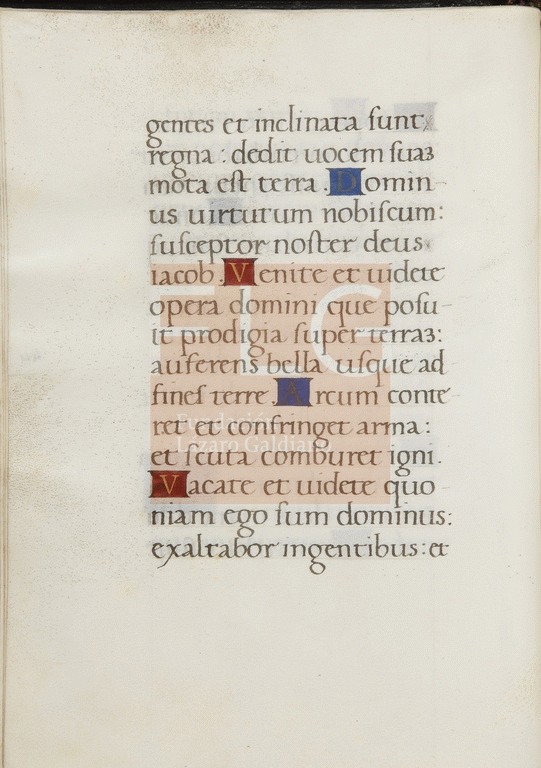 gentes et inclinata sunt
regna : dedit uocem suaʒ
mota est terra . Domin-
us uirtutum nobiscum:
susceptor noster deus
iacob . Venite et uidete
opera domini que posu-
it prodigia super terraʒ:
auferens bella usque ad
fines terre . Arcum conte-
ret et confringet arma:
et scuta comburet igni.
Vacate et uidete quo-
niam ego sum dominus:
exaltabor ingentibus: et
FLG
Fundación
Lázaro Galdiano